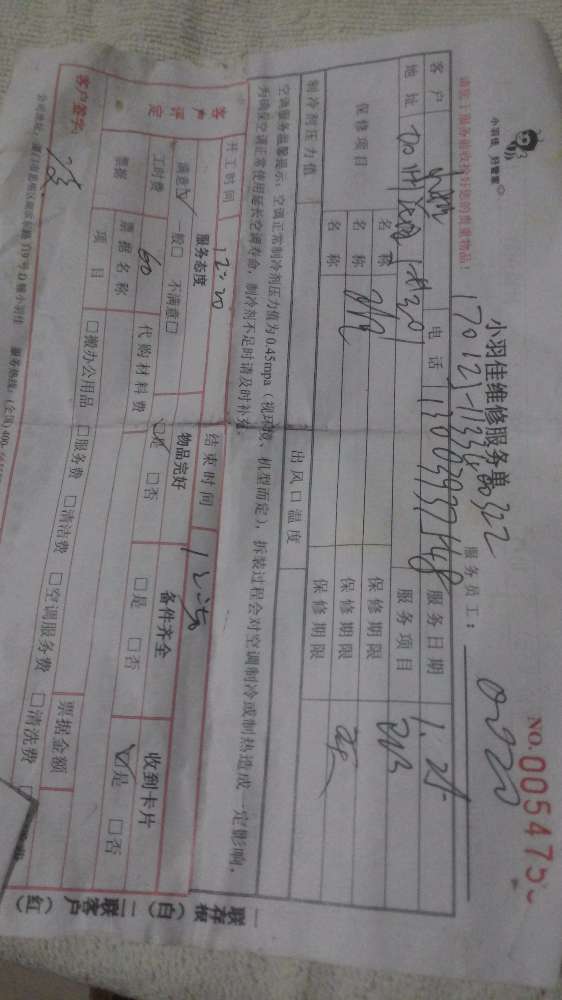 小羽佳 好管家
请您于服务前收检好您的贵重物品！
小羽佳维修服务单
NO.005475
服务员工：
客户
电话 13003937548
服务日期 1.25
地址
服务项目
保修项目
名称
保修期限
名称
保修期限
名称
保修期限
制冷剂压力值
出风口温度
空调服务温馨提示：空调正常制冷剂压力值为0.45mpa（视环境、机型而定），拆装过程会对空调制冷或制热造成一定影响，
为确保空调正常使用延长空调寿命，制冷剂不足时请及时补充。
开工时间 12:20
结束时间
客户评定
服务态度
物品完好
备件齐全
收到卡片
满意☑ 一般□ 不满意□
☑是 □否
□是 □否
☑是 □否
工时费 60
代购材料费
票据
票据名称
票据金额
项目
□搬办公用品 □服务费 □清洁费 □空调服务费 □清洗费
客户签字：
服务热线：(全国)400
一联存根（白） 二联客户（红）